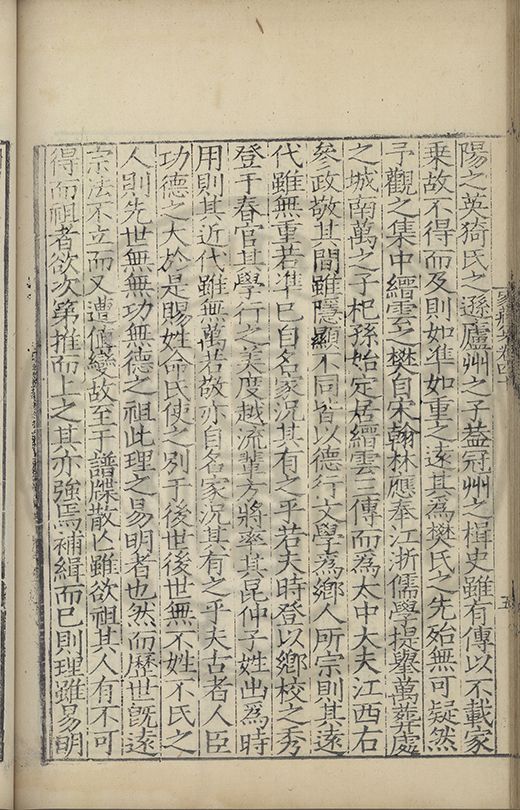 陽之英猗氏之遜廬州之子蓋冠州之楫史雖有傳以不載家
乗故不得而及則如準如重之遠其爲樊氏之先殆無可疑然
予觀之集中縉雲之樊自宋翰林應奉江浙儒學提舉萬葬處
之城南萬之子杞孫始定居縉雲三傳而爲太中大夫江西右
參政敬其間雖隱顯不同皆以德行文學爲鄉人所宗則其遠
代雖無重若準已自名家況其有之乎若夫時登以鄉校之秀
登于春官其學行之美度越流輩方將率其昆仲子姓出爲時
用則其近代雖無萬若敬亦自名家況其有之乎夫古者人臣
功德之大於是賜姓命氏使之別于後世後世無不姓不氏之
人則先世無無功無德之祖此理之易明者也然而歷世旣遠
宗法不立而又遭値變故至于譜牒散亾雖欲祖其人有不可
得而祖者欲次第推而上之其亦強焉補緝而已則理雖易明
五